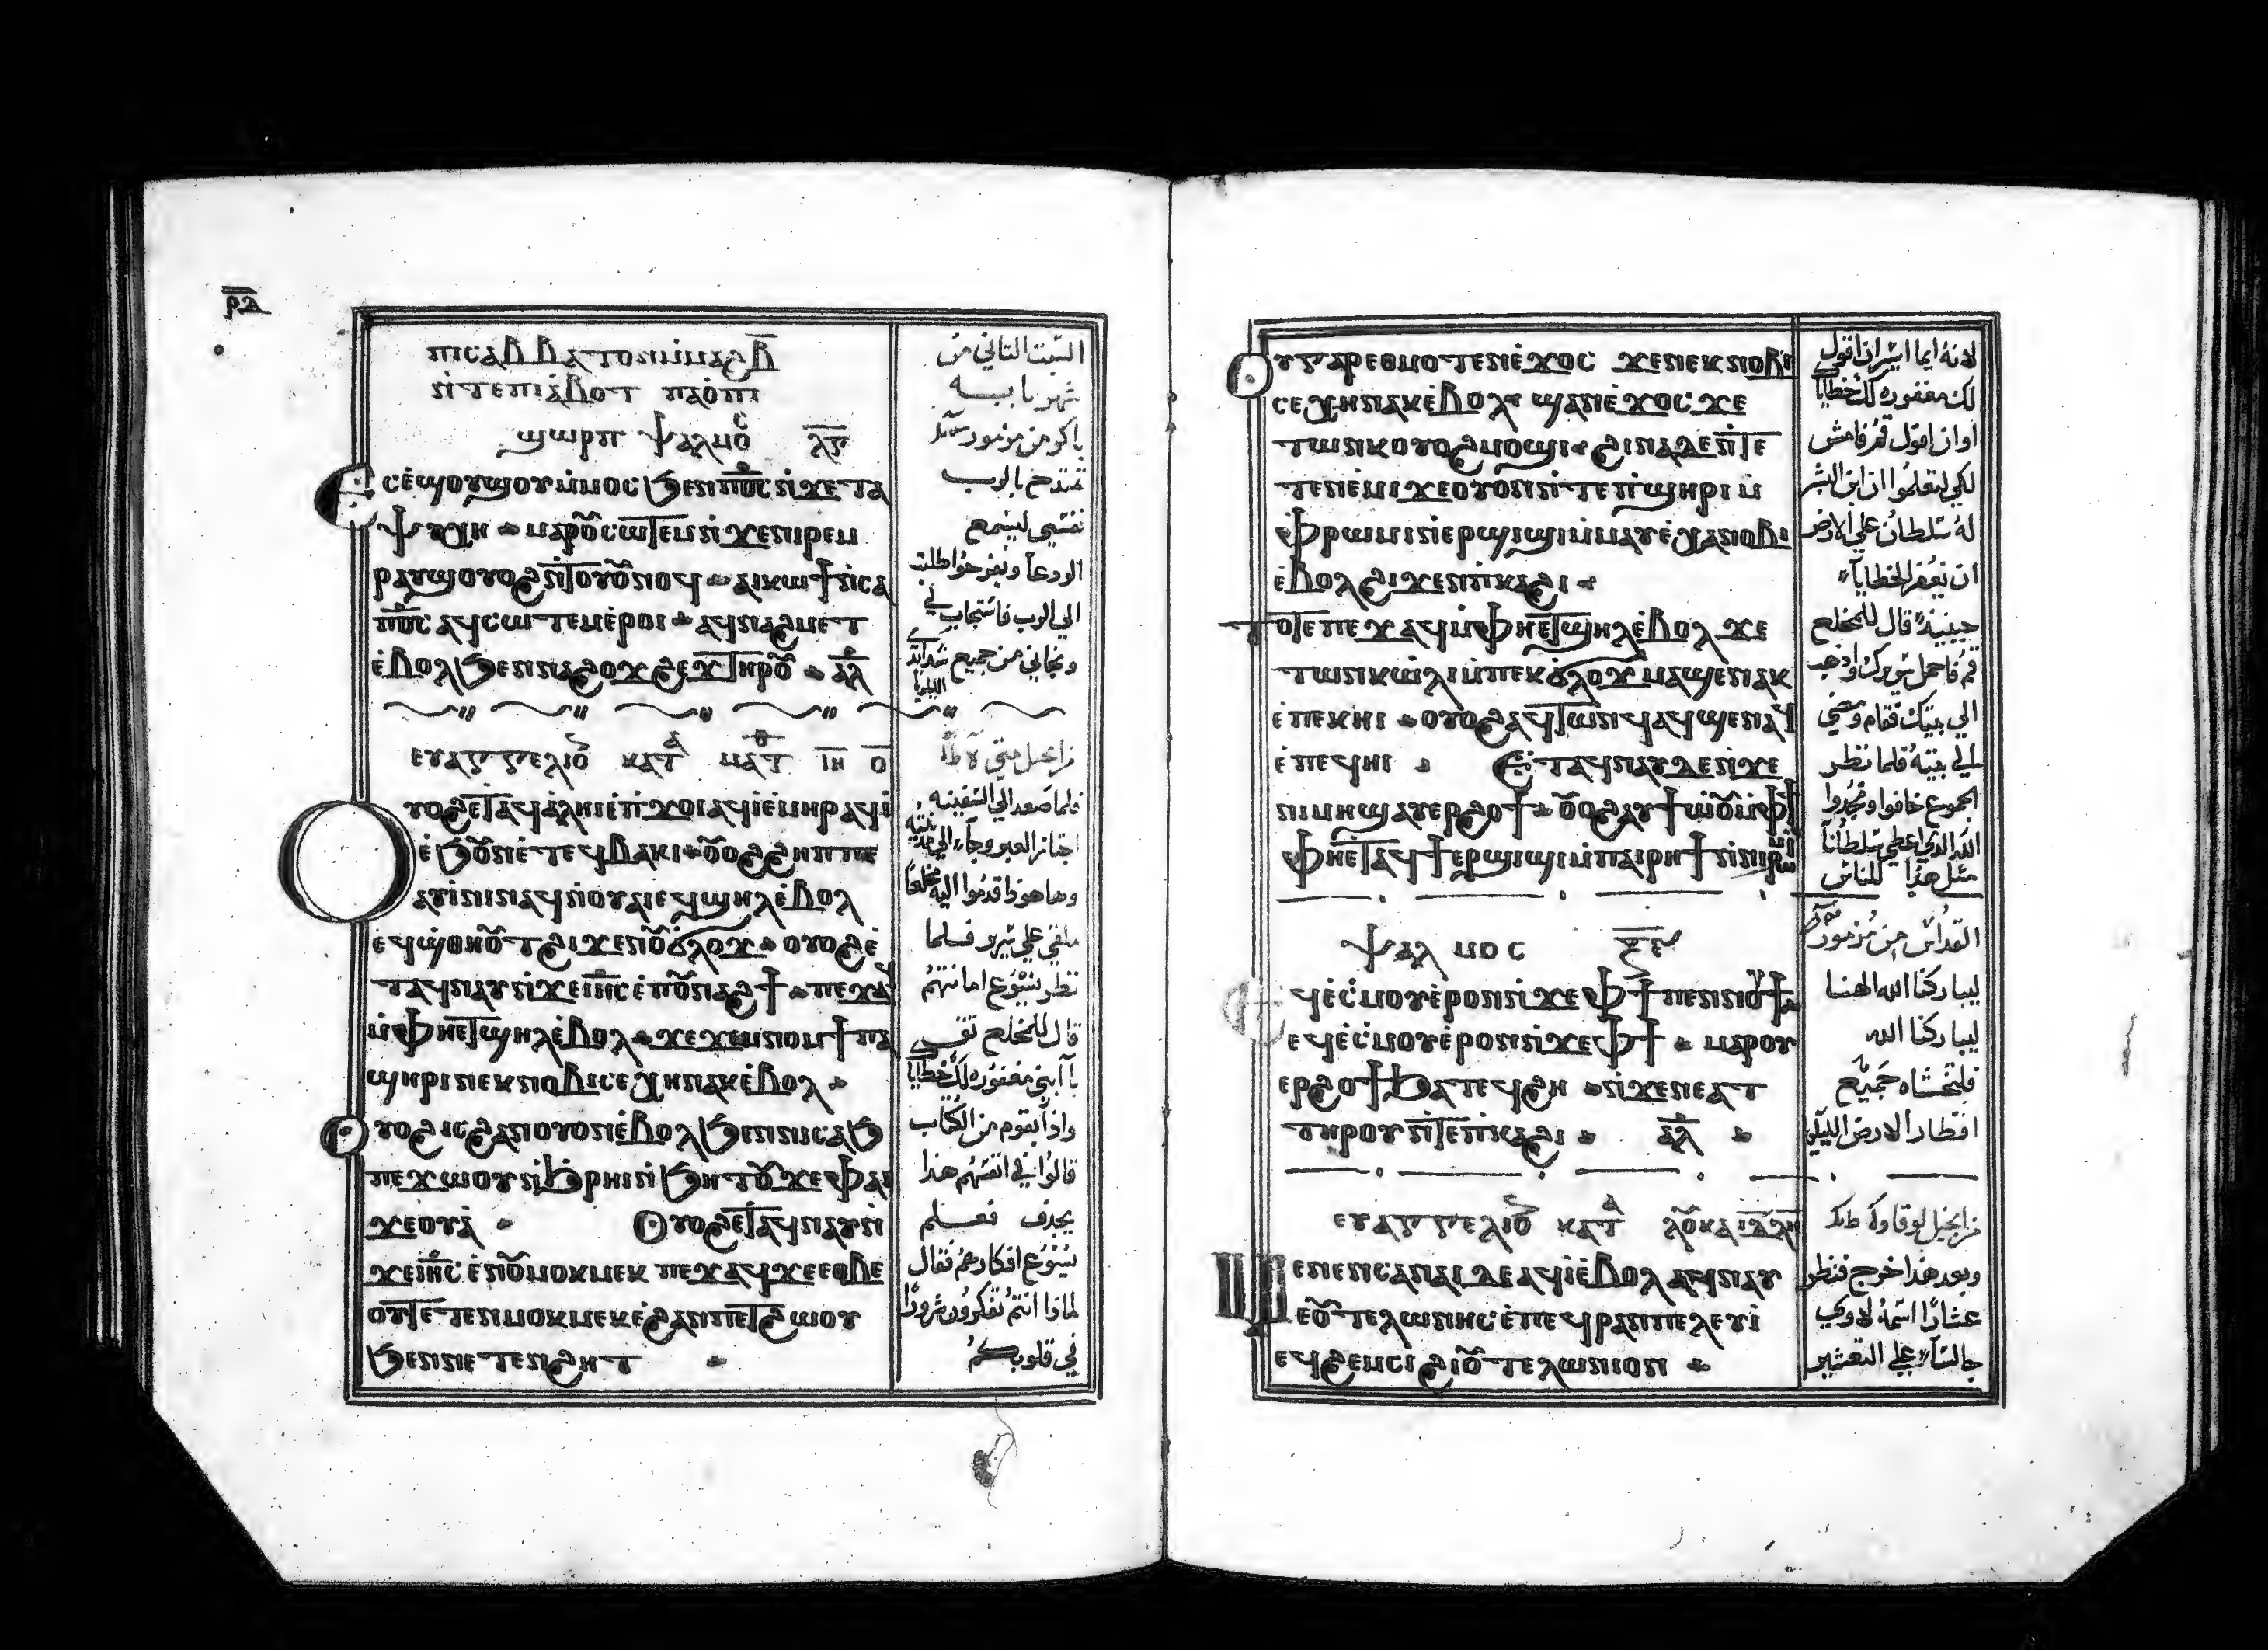 ⲣⲇ
ⲡⲓⲥⲁⲃⲃⲁⲧⲟⲛ ⲙ̇ⲙⲁϩⲃ̅
ⲛ̇ⲧⲉⲡⲓⲁ̇ⲃⲟⲧ ⲡⲁⲟ̇ⲡⲓ
ϣⲱⲣⲡ ⲯⲁⲗⲙⲟⲥ ⲗ̅ⲅ̅
ⲥⲉ̇ϣⲟⲩϣⲟⲩ ⲙ̇ⲙⲟⲥ ϧⲉⲛⲡⲟ̅ⲥ̅ ⲛ̇ϫⲉⲧⲁ
ⲯⲩⲭⲏ ⲙⲁⲣⲟⲩⲥⲱⲧⲉⲙ ⲛ̇ϫⲉⲛⲓⲣⲉⲙ
ⲣⲁⲩϣ ⲟⲩⲟϩ ⲛ̇ⲧⲟⲩⲟⲩⲛⲟϥ ⲁⲓⲕⲱϯ ⲛ̇ⲥⲁ
ⲡⲟ̅ⲥ̅ ⲁϥⲥⲱⲧⲉⲙ ⲉ̇ⲣⲟⲓ ⲁϥⲛⲁϩⲙⲉⲧ
ⲉ̇ⲃⲟⲗ ϧⲉⲛⲛⲁϩⲟϫϩⲉϫ ⲧⲏⲣⲟⲩ ⲁ̅ⲗ̅
ⲉⲩⲁⲅⲅⲉⲗⲓⲟⲛ ⲕⲁⲧⲁ ⲙⲁⲧⲑ ⲓ̅ⲏ̅ ⲟ̅
ⲟⲩⲟϩ ⲉ̇ⲧⲁϥⲁ̇ⲗⲏⲓ ⲉ̇ⲡ̇ϫⲟⲓ ⲁϥⲓ̇ ⲉ̇ⲙⲏⲣ ⲁϥⲓ̇
ⲉ̇ϧⲟⲩⲛ ⲉ̇ⲧⲉϥⲃⲁⲕⲓ ⲟⲩⲟϩ ϩⲏⲡⲡⲉ
ⲁⲩⲓ̇ⲛⲓ ⲛⲁϥ ⲛ̇ⲟⲩⲁⲓ ⲉϥϣⲏⲗ ⲉ̇ⲃⲟⲗ
ⲉϥϣ̇ⲑⲏⲟⲩⲧ ϩⲓϫⲉⲛ ⲟⲩϭⲗⲟϫ ⲟⲩⲟϩ ⲉ̇
ⲧⲁϥⲛⲁⲩ ⲛ̇ϫⲉⲓⲏ̅ⲥ̅ ⲉ̇ⲡⲟⲩⲛⲁϩϯ ⲡⲉϫⲁϥ
ⲙ̇ⲫⲏⲉⲧϣⲏⲗ ⲉ̇ⲃⲟⲗ ϫⲉϫⲉⲙⲛⲟⲙϯ ⲡⲁ
ϣⲏⲣⲓ ⲛⲉⲕⲛⲟⲃⲓ ⲥⲉⲭⲏ ⲛⲁⲕ ⲉ̇ⲃⲟⲗ
ⲟⲩⲟϩ ⲓⲥ ϩⲁⲛⲟⲩⲟⲛ ⲉ̇ⲃⲟⲗ ϧⲉⲛⲛⲓⲥⲁϧ
ⲡⲉϫⲱⲟⲩ ⲛ̇ϧ̇ⲣⲏⲓ ⲛ̇ϧⲏⲧⲟⲩ ϫⲉⲫⲁⲓ
ϫⲉⲟⲩⲁ̇ ⲟⲩⲟϩ ⲉ̇ⲧⲁϥⲛⲁⲩ ⲛ̇
ϫⲉⲓⲏ̅ⲥ̅ ⲉ̇ⲛⲟⲩⲙⲟⲕⲙⲉⲕ ⲡⲉϫⲁϥ ϫⲉⲉⲑⲃⲉ
ⲟⲩ ⲧⲉⲧⲉⲛⲙⲟⲕⲙⲉⲕ ⲉ̇ϩⲁⲛⲡⲉⲧϩⲱⲟⲩ
ϧⲉⲛⲛⲉⲧⲉⲛϩⲏⲧ
السبت التاني من
شهر بابه
باكر من مزمور
تمتدح بالرب
نفسي ليسمع
الودعآ ويفرحوا طلبت
الي الرب فاستجاب لي
ونجاني من جميع شدايدي
الليلويا
من انجيل متي
فلما صعد الي السفينه
اجتاز العبر وجاء الي مدينته
وهاهوذا قدموا اليه مخلعا
ملقي علي سرير فلما
نظر يسوع امانتهم
قال للمخلع تقي
يا ابني مغفوره لك خطاياك
واذا بقوم من الكتاب
قالوا في انفسهم هذا
يجدف فعلم
يسوع افكارهم فقال
لماذا انتم تفكرون شرورا
في قلوبكم
ⲟⲩⲅⲁⲣ ⲉⲑⲙⲟⲧⲉⲛ ⲉ̇ϫⲟⲥ ϫⲉⲛⲉⲕⲛⲟⲃⲓ
ⲥⲉⲭⲏ ⲛⲁⲕ ⲉ̇ⲃⲟⲗ ϣⲁⲛ ⲉ̇ϫⲟⲥ ϫⲉ
ⲧⲱⲛⲕ ⲟⲩⲟϩ ⲙⲟϣⲓ ϩⲓⲛⲁ ⲇⲉ ⲛ̇ⲧⲉ
ⲧⲉⲛⲉ̇ⲙⲓ ϫⲉⲟⲩⲟⲛ ⲛ̇ⲧⲉⲡ̇ϣⲏⲣⲓ ⲙ̇
ⲫⲣⲱⲙⲓ ⲛ̇ⲉⲣϣⲓϣⲓ ⲙ̇ⲙⲁⲩ ⲉ̇ⲭⲁⲛⲟⲃⲓ
ⲉ̇ⲃⲟⲗ ϩⲓϫⲉⲛⲡⲓⲕⲁϩⲓ
ⲧⲟⲧⲉ ⲡⲉϫⲁϥ ⲙ̇ⲫⲏⲉⲧϣⲏⲗ ⲉ̇ⲃⲟⲗ ϫⲉ
ⲧⲱⲛⲕ ⲱ̇ⲗⲓ ⲙ̇ⲡⲉⲕϭⲗⲟϫ ⲙⲁϣⲉⲛⲁⲕ
ⲉ̇ⲡⲉⲕⲏⲓ ⲟⲩⲟϩ ⲁϥⲧⲱⲛϥ ⲁϥϣⲉⲛⲁϥ
ⲉ̇ⲡⲉϥⲏⲓ ⲉ̇ⲧⲁⲩⲛⲁⲩ ⲇⲉ ⲛ̇ϫⲉ
ⲛⲓⲙⲏϣ ⲁⲩⲉⲣϩⲟϯ ⲟⲩⲟϩ ⲁⲩϯⲱ̇ⲟⲩ ⲙ̇ⲫϯ
ⲫⲏⲉⲧⲁϥϯ ⲉⲣϣⲓϣⲓ ⲙ̇ⲡⲁⲓⲣⲏϯ ⲛ̇ⲛⲓⲣⲱⲙⲓ
ⲯⲁⲗⲙⲟⲥ ⲝ̅ⲉ̅
ⲉϥⲉ̇ⲥ̇ⲙⲟⲩ ⲉ̇ⲣⲟⲛ ⲛ̇ϫⲉⲫϯ ⲡⲉⲛⲛⲟⲩϯ
ⲉϥⲉ̇ⲥ̇ⲙⲟⲩ ⲉ̇ⲣⲟⲛ ⲛ̇ϫⲉⲫϯ ⲙⲁⲣⲟⲩ
ⲉⲣϩⲟϯ ϧⲁⲧⲉϥϩⲏ ⲛ̇ϫⲉⲛⲉⲁⲧ
ⲧⲏⲣⲟⲩ ⲛ̇ⲧⲉⲡⲓⲕⲁϩⲓ ⲁ̅ⲗ̅
ⲉⲩⲁⲅⲅⲉⲗⲓⲟⲛ ⲕⲁⲧⲁ ⲗⲟⲩⲕⲁ
ⲙⲉⲛⲉⲛⲥⲁⲛⲁⲓ ⲇⲉ ⲁϥⲓ̇ ⲉ̇ⲃⲟⲗ ⲁϥⲛⲁⲩ
ⲉⲟⲩⲧⲉⲗⲱⲛⲏⲥ ⲉ̇ⲡⲉϥⲣⲁⲛ ⲡⲉ ⲗⲉⲩⲓ̇
ⲉϥϩⲉⲙⲥⲓ ϩⲓⲟⲩⲧⲉⲗⲱⲛⲓⲟⲛ
لانه ايما ايسر ان اقول
لك مغفوره لك خطاياك
او ان اقول قم فامش
لكي لتعلموا ان ابن البشر
له سلطان علي الارض
ان يغفر الخطايآ
حينيذ قال للمخلع
قم فاحمل سريرك واذهب
الي بيتك فقام ومضي
الي بيته فلما نظر
الجموع خافوا ومجدوا
الله الذي اعطي سلطانا
مثل هذا للناس
القداس من مزمور
ليباركنا الله الهنا
ليباركنا الله
فلتخشاه جميع
اقطار الارض الليلويا
من انجيل لوقا
وبعد هذا خرج فنظر
عشارا اسمه لاوي
جالسآ علي التعشير